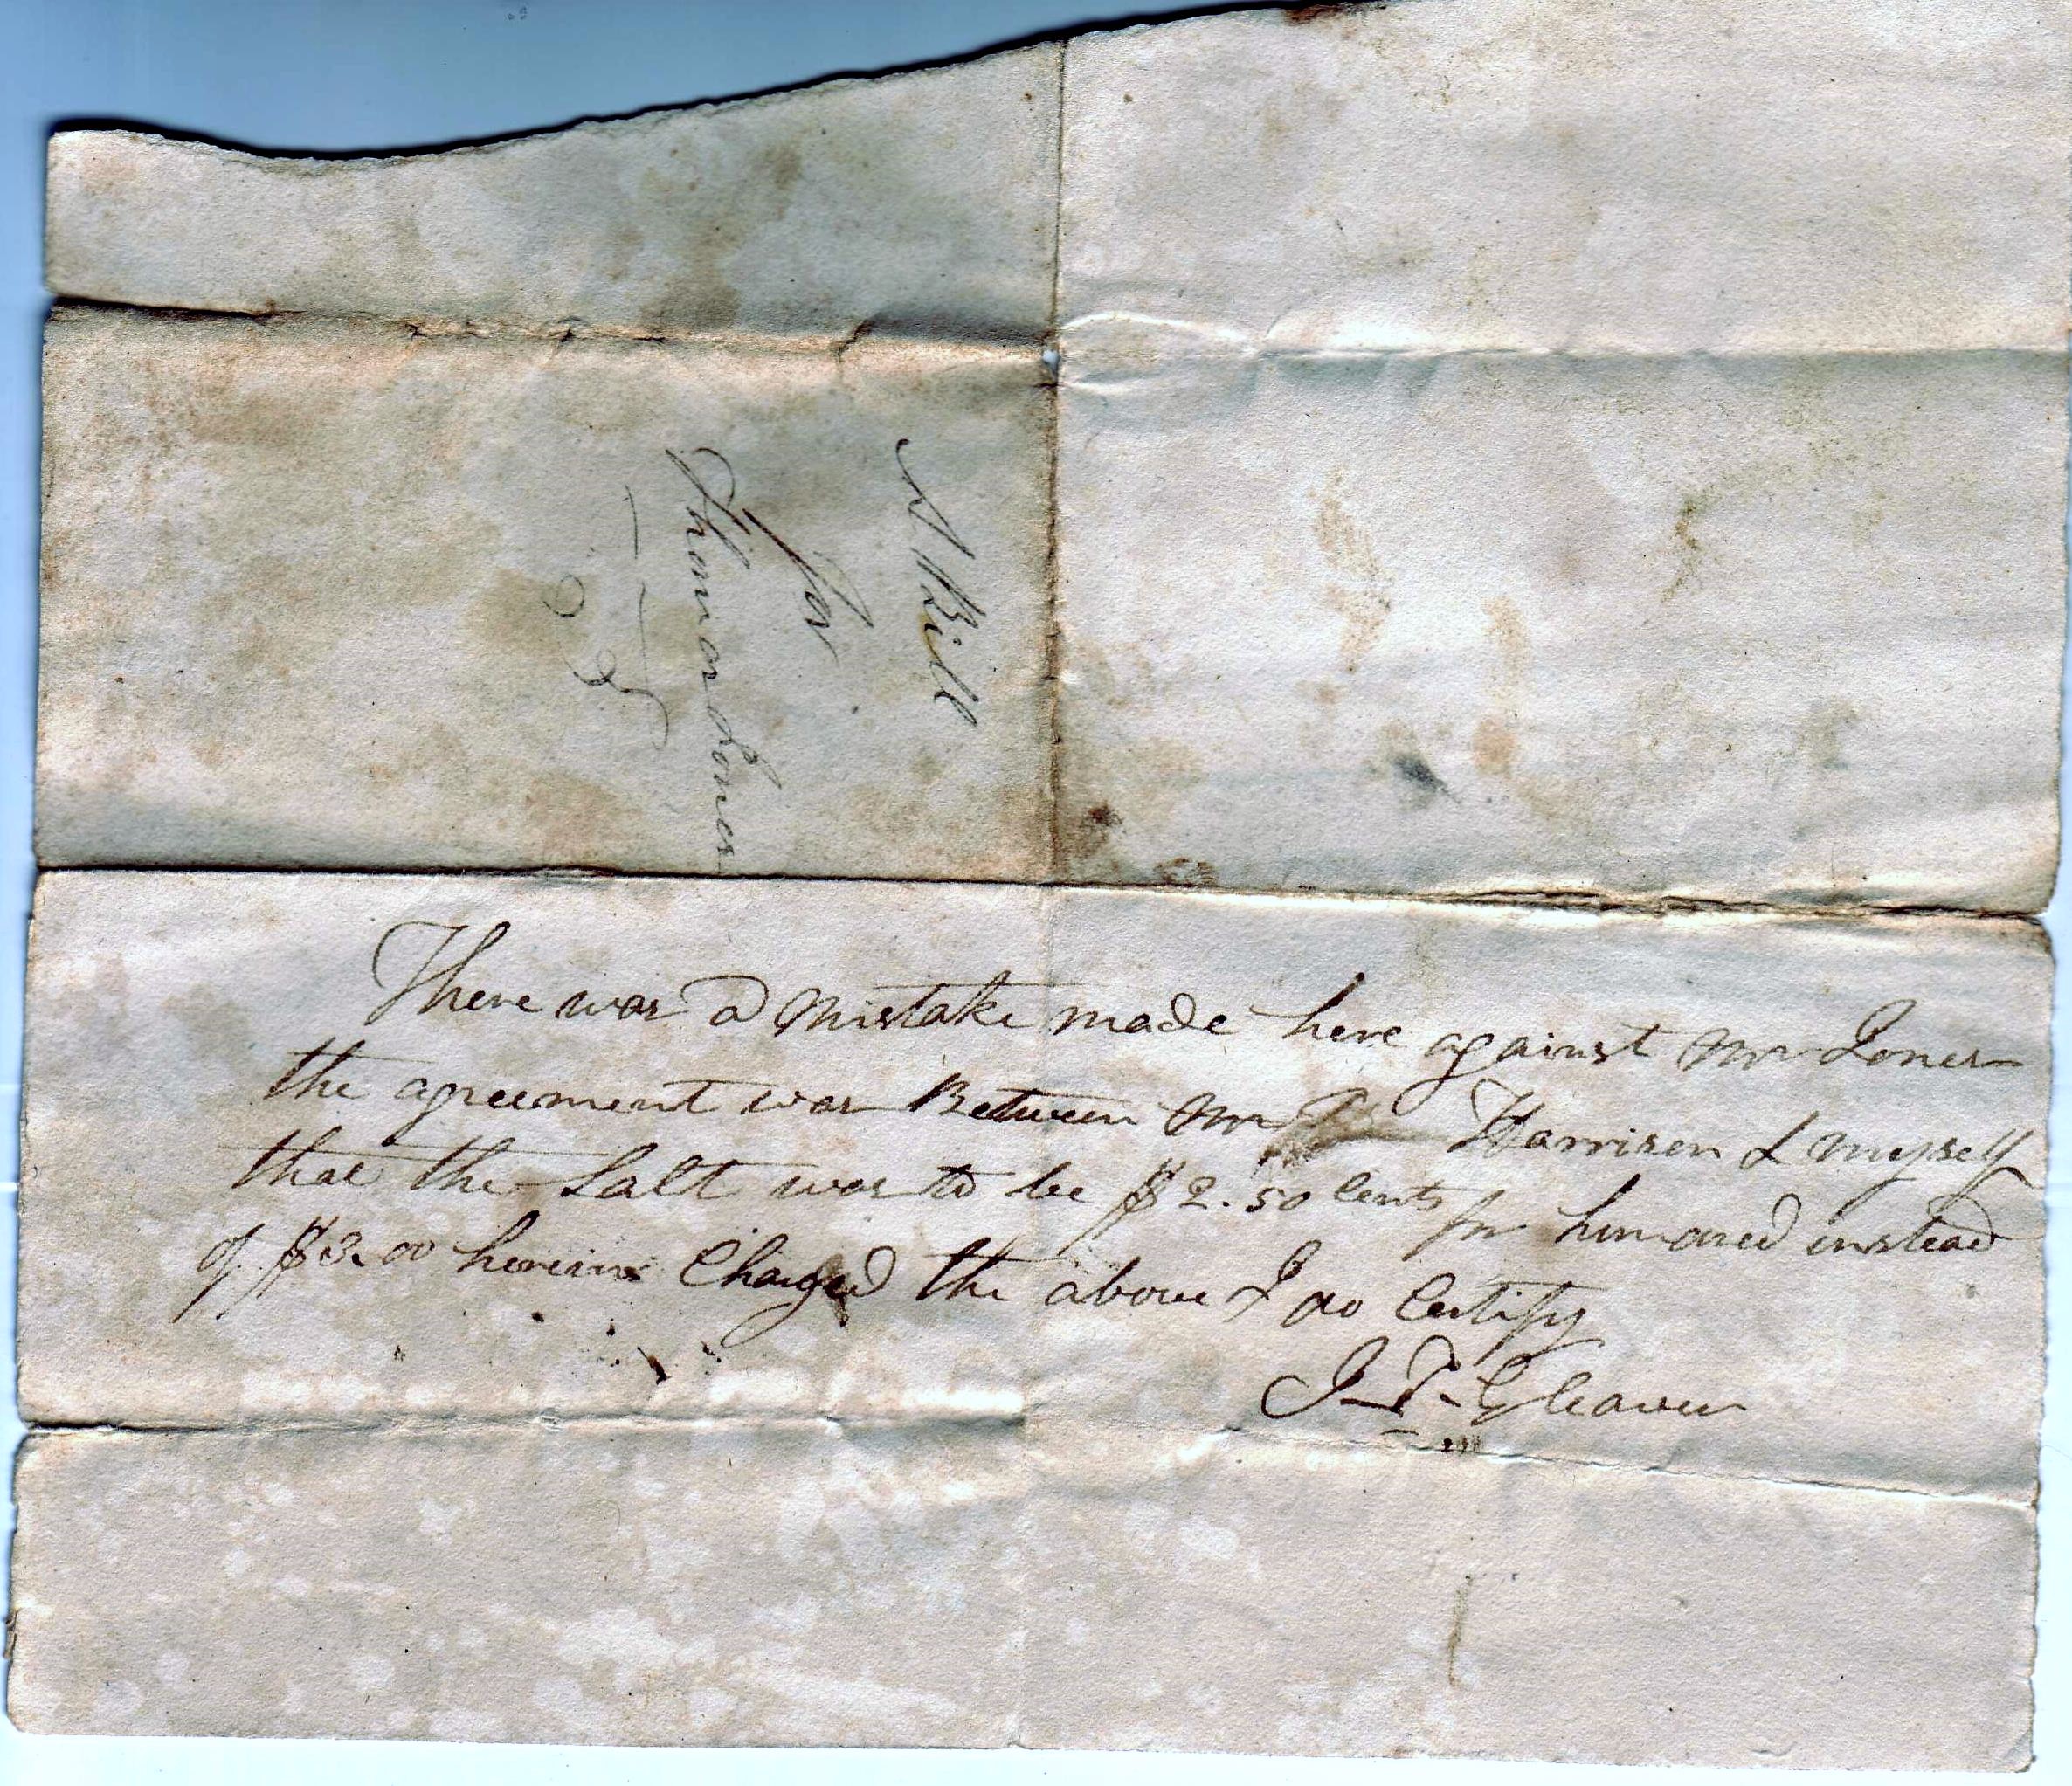 A Bill
for
Thomas Jones
There was a mistake made here against Mr Jones
the agreement was Between Mr Harrison & myself
that the Salt was to be $2.50 Cents pr hundred instead
of $3.00 herein Charged the above I do Certify
J. P. Gleaver